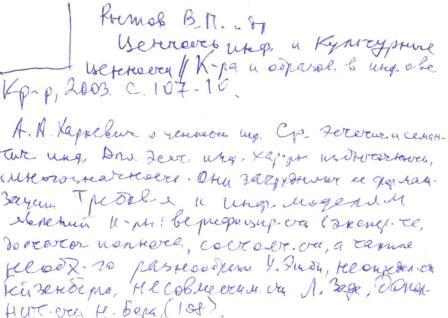 Рыжов В.П.
Ценность инф. и Культурные
ценности // К-ра и образов. в инф. о-ве
Кр-р, 2003. С. 107-10.
А.А. Харкевич о ценности инф. Ср. эстетич и семан-
тич инф. Для эст. инф. хар-ны избыточность,
многозначность. Они затрудняют ее формали-
зации Требов-я к инф. моделям
явлений к-ры: верифицир-сти (экспер-те,
достаточн полноте, состоят-сти, а также
необх-го разнообразия У. Эшби, неопредел-сти
Гейзенберга, несовместим-сти Л. Заде, дополн-
нит-сти Н. Бора (108).